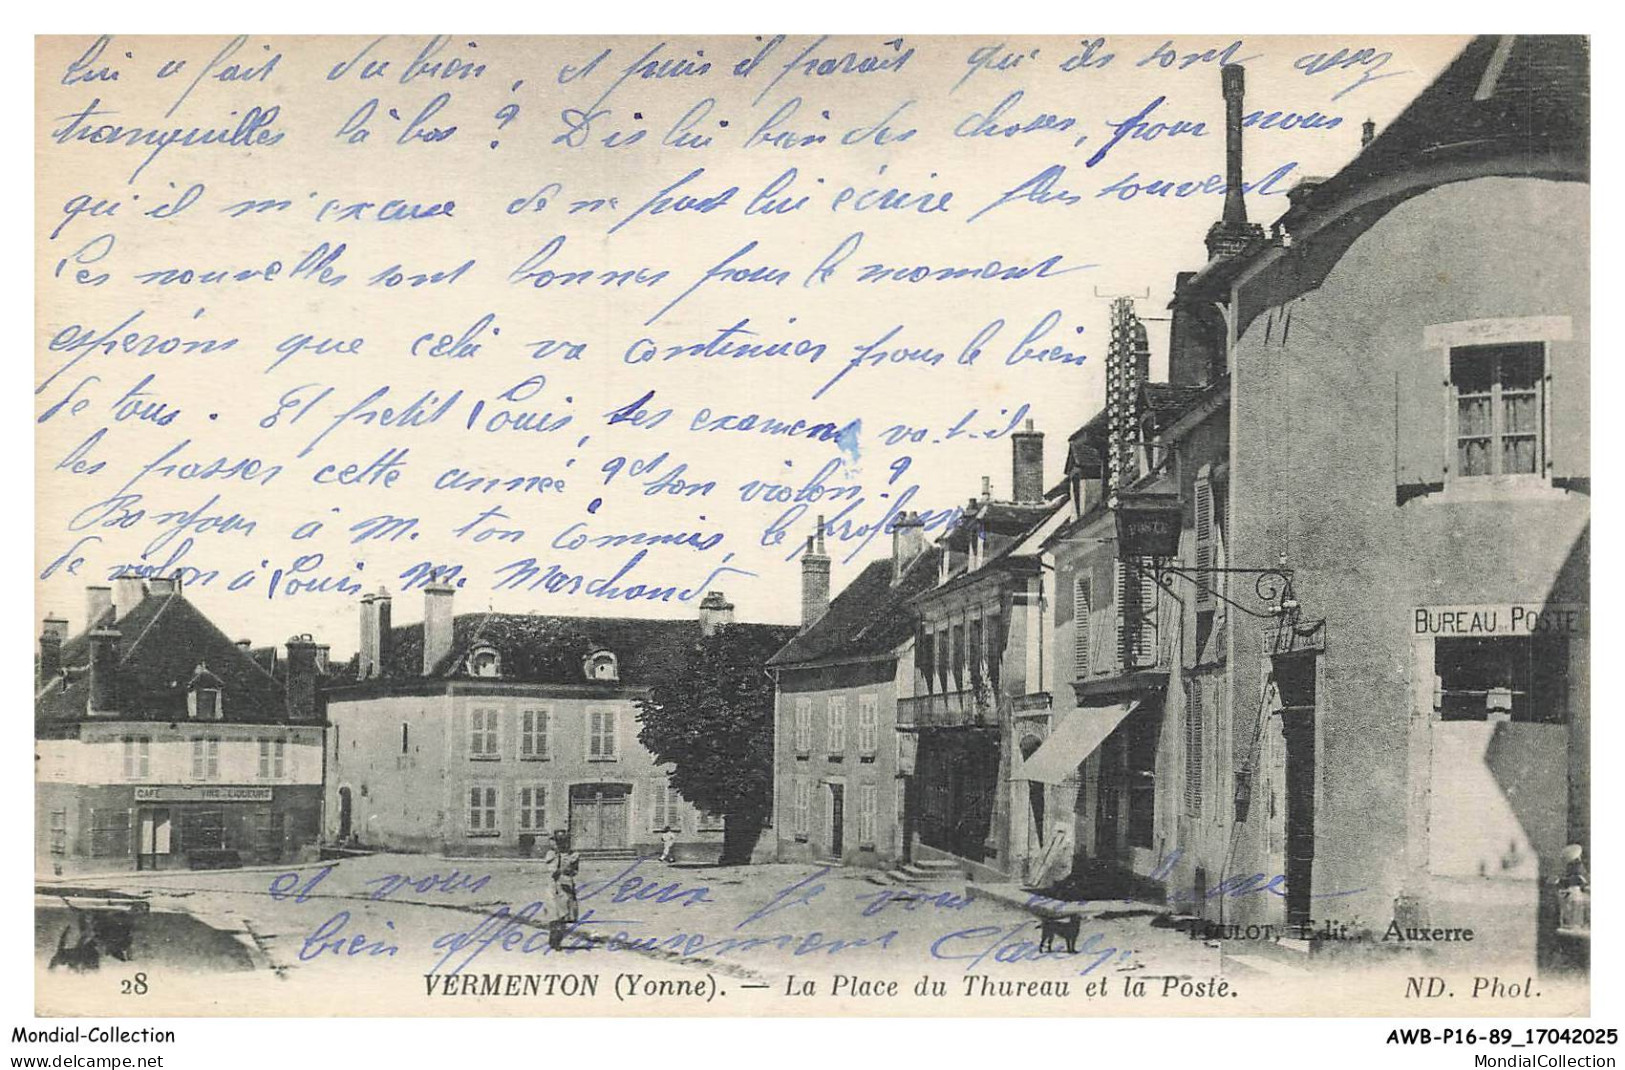 lui a fait du bien, et puis il paraît qu'ils sont assez
tranquilles là bas ? Dis lui bien des choses, pour nous
qu'il m'excuse de ne pas lui écrire plus souvent
Les nouvelles sont bonnes pour le moment
espérons que celà va continuer pour le bien
de tous. Et petit Louis, ses examens va-t-il
les passer cette année ? et son violon ?
Bonjour à M. ton Commis, le professeur
de violon à Louis M. Marchand
et vous deux je vous
bien affectueusement
POSTE
BUREAU POSTE
CAFÉ VINS LIQUEURS
TOULOT, Edit., Auxerre
28 VERMENTON (Yonne). — La Place du Thureau et la Poste. ND. Phot.
Mondial-Collection AWB-P16-89_17042025
www.delcampe.net MondialCollection